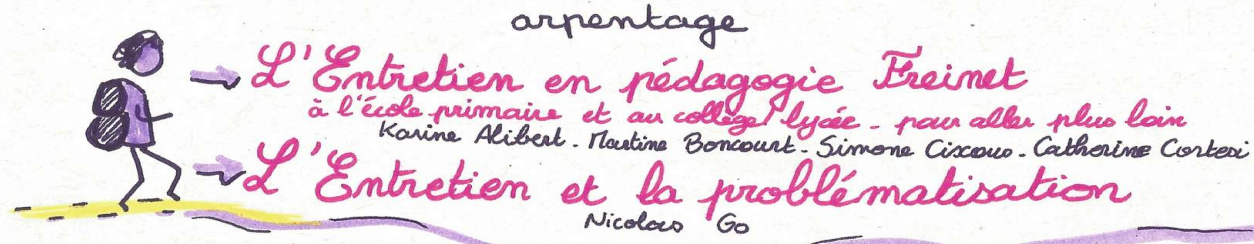 arpentage
L'Entretien en pédagogie Freinet
à l'école primaire et au collège/lycée - pour aller plus loin
Karine Alibert - Martine Boncourt - Simone Cixous - Catherine Cortesi
L'Entretien et la problématisation
Nicolas Go